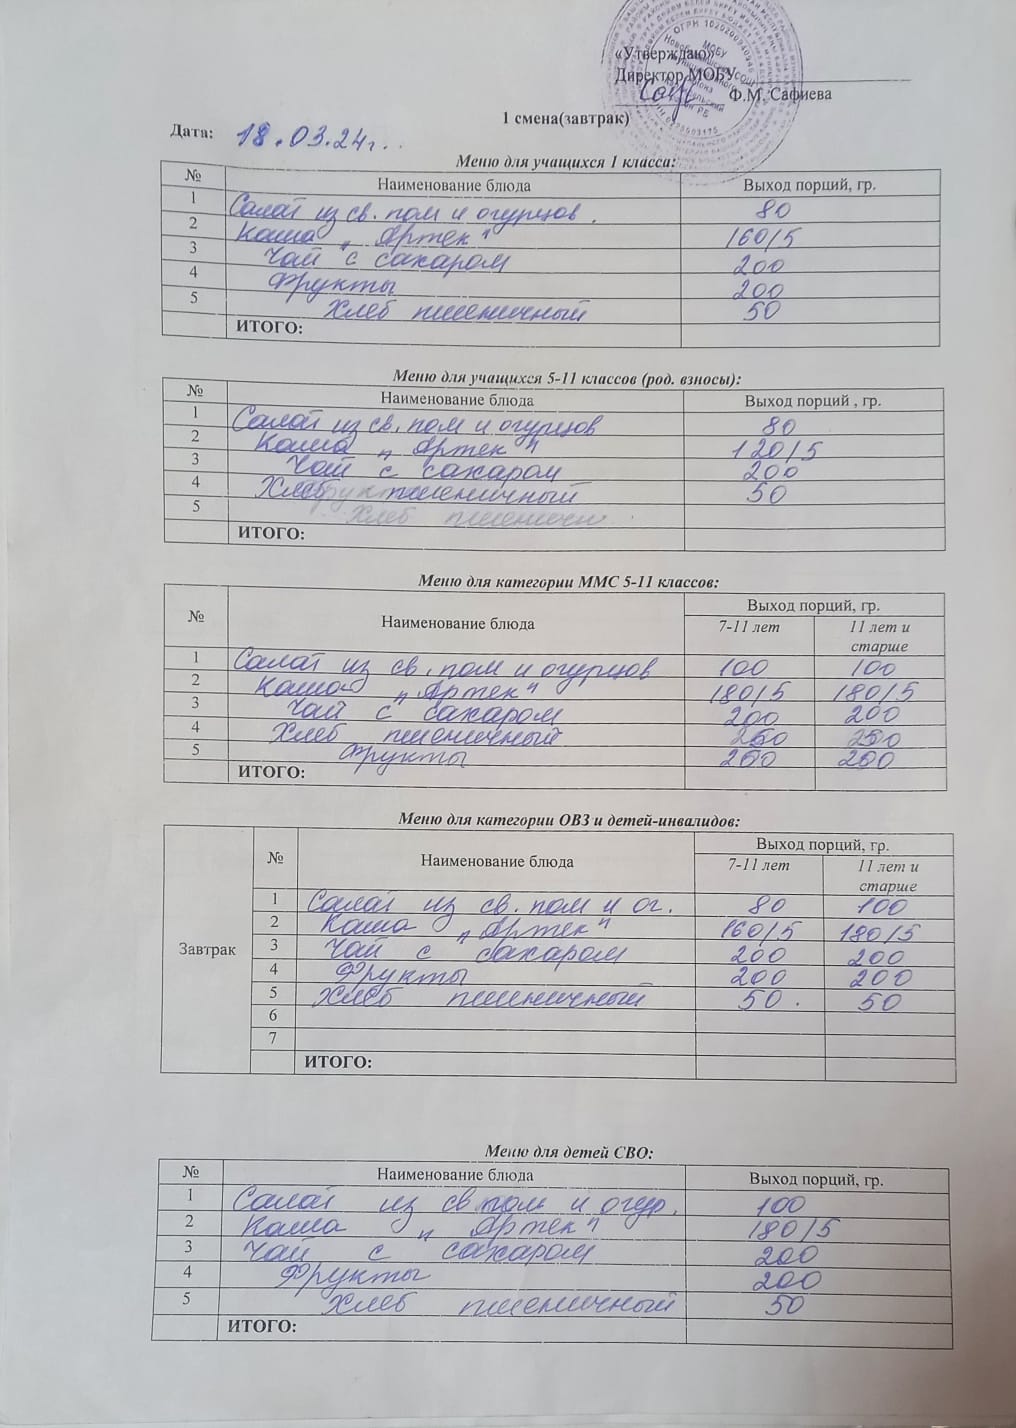 «Утверждаю»
Директор МОБУ
Ф.М. Сафиева
ОГРН
МОБУ
СОШ
1 смена(завтрак)
Дата: 18.03.24г.
Меню для учащихся 1 класса:
№ Наименование блюда Выход порций, гр.
1 Салат из св. пом и огурцов. 80
2 Каша „Артек" 160/5
3 Чай с сахаром 200
4 Фрукты 200
5 Хлеб пшеничный 50
ИТОГО:
Меню для учащихся 5-11 классов (род. взносы):
№ Наименование блюда Выход порций , гр.
1 Салат из св. пом и огурцов 80
2 Каша „Артек" 120/5
3 Чай с сахаром 200
4 Хлеб пшеничный 50
5 Хлеб
ИТОГО:
Меню для категории ММС 5-11 классов:
№ Наименование блюда Выход порций, гр.
7-11 лет 11 лет и старше
1 Салат из св. пом и огурцов 100 100
2 Каша „Артек" 180/5 180/5
3 Чай с сахаром 200 200
4 Хлеб пшеничный
5 Фрукты 200 200
ИТОГО:
Меню для категории ОВЗ и детей-инвалидов:
Завтрак № Наименование блюда Выход порций, гр.
7-11 лет 11 лет и старше
1 Салат из св. пом и ог. 80 100
2 Каша „Артек" 160/5 180/5
3 Чай с сахаром 200 200
4 Фрукты 200 200
5 Хлеб пшеничный 50. 50
6
7
ИТОГО:
Меню для детей СВО:
№ Наименование блюда Выход порций, гр.
1 Салат из св пом и огур. 100
2 Каша „Артек" 180/5
3 Чай с сахаром 200
4 Фрукты 200
5 Хлеб пшеничный 50
ИТОГО: